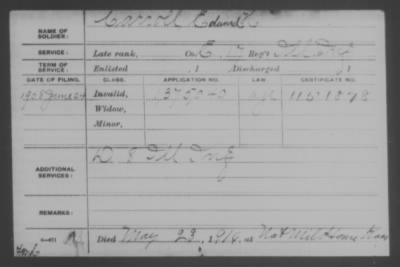 NAME OF SOLDIER: Carroll Edward
SERVICE: Late rank, Co. E, 17 Reg't Ill Inf
TERM OF SERVICE: Enlisted , 1 Discharged , 1
DATE OF FILING. CLASS. APPLICATION NO. LAW. CERTIFICATE NO.
1908 June 24 Invalid, 1151878
Widow,
Minor,
ADDITIONAL SERVICES: D 8 Ill Inf
REMARKS:
Died May 23, 1914, at Nat Mil Home